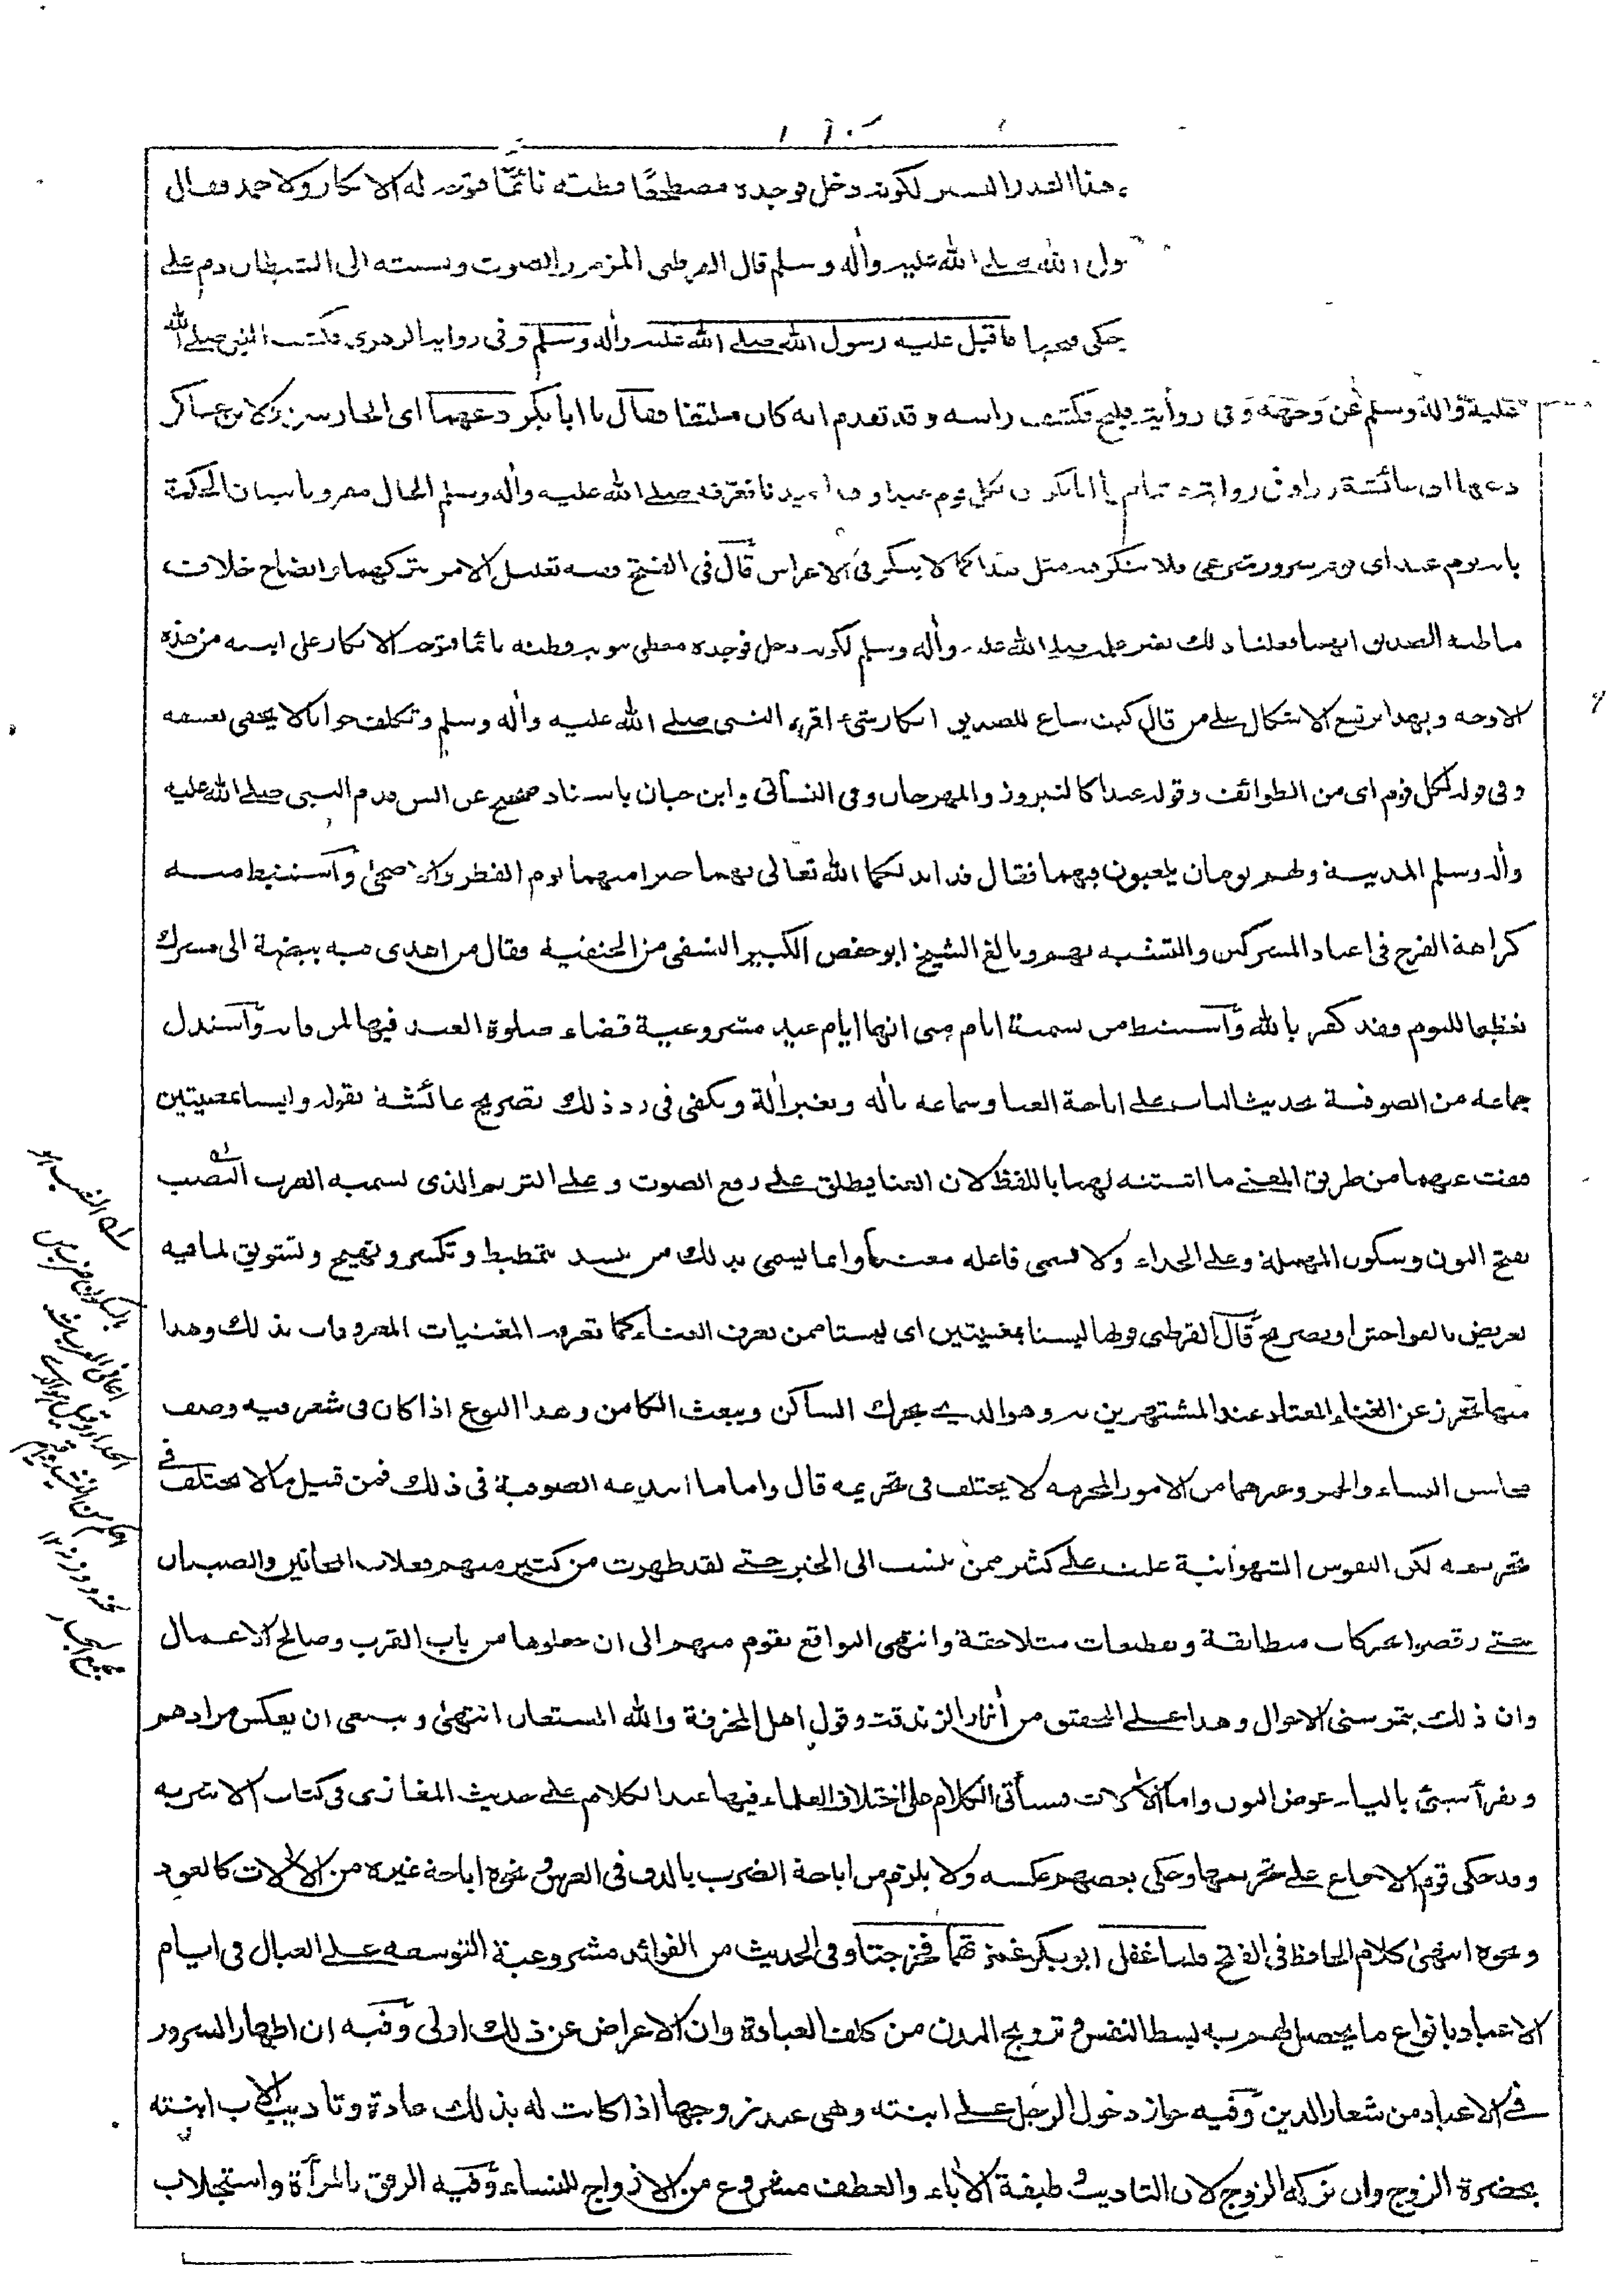 هذا القدر اليسير لكونه دخل فوجده مضطجعا فظنه نائما فتوجه له الانكار ولاحمد فقال
رسول الله صلے الله عليه وأله وسلم قال القرطبى المزمور الصوت ونسبته الى الشيطان ذم على
ما حكى فاقبل عليه رسول الله صلے الله عليه وأله وسلم وفى رواية الزهرى فكشف النبى صلے الله
عليه وأله وسلم عن وجهه وفى رواية فليح فكشف راسه وقد تقدم انه كان ملتفا فقال يا ابا بكر دعهما اى الجاريتين ولابن عساكر
دعها اى عائشة وزاد فى رواية هشام يا ابا بكر ان لكل قوم عيدا وهذا عيدنا فعرفه صلے الله عليه وأله وسلم الحال مقرونا ببيان الحكمة
بانه يوم عيد اى يوم سرور شرعى فلا ينكر فيه مثل هذا كما لا ينكر فى الاعراس قال فى الفتح وفيه تعليل الامر بتركهما وايضاح خلاف
ما ظنه الصديق انهما فعلتا ذلك بغير علمه صلے الله عليه وأله وسلم لكونه دخل فوجده مغطى بثوبه فظنه نائما فتوجه الانكار على ابنته من هذه
الاوجه وبهذا يرتفع الاشكال على من قال كيف ساغ للصديق انكار شئ اقره النبى صلے الله عليه وأله وسلم وتكلف جوابا لا يخفى تعسفه
وفى قوله لكل قوم اى من الطوائف وقوله عيدا كالنيروز والمهرجان وفى النسائى وابن حبان باسناد صحيح عن انس قدم النبى صلے الله عليه
وأله وسلم المدينة ولهم يومان يلعبون فيهما فقال قد ابدلكما الله تعالى بهما خيرا منهما يوم الفطر والاضحى وأستنبط منه
كراهة الفرح فى اعياد المشركين والتشبه بهم وبالغ الشيخ ابو حفص الكبير النسفى من الحنفية فقال من اهدى فيه بيضة الى مشرك
تعظيما لليوم فقد كفر بالله وأستنبط من تسمية ايام منى انها ايام عيد مشروعية قضاء صلوة العيد فيها لمن فاته وأستدل
جماعة من الصوفية بحديث الباب على اباحة الغنا وسماعه بأله وبغير ألة ويكفى فى رد ذلك تصريح عائشة بقوله وليستا بمغنيتين
فنفت عنهما من طريق المعنى ما اثبتته لهما باللفظ لان الغنا يطلق على رفع الصوت وعلى الترنم الذى تسميه العرب النصب
بفتح النون وسكون المهملة وعلى الحداء ولا تسمى فاعله مغنيا وانما يسمى بذلك من ينشد بتمطيط وتكسر وتهييج وتشويق لما فيه
تعريض بالفواحش او تصريح قال القرطبى قولها ليستا بمغنيتين اى ليستا ممن تعرف الغناء كما تعرفه المغنيات المعروفات بذلك وهذا
منها تحرز عن الغناء المعتاد عند المشتهرين به وهو الذى يحرك الساكن ويبعث الكامن وهذا النوع اذا كان فى شعر فيه وصف
محاسن النساء والخمر وغيرهما من الامور المحرمه لا يختلف فى تحريمه قال واما ما ابتدعه الصوفية فى ذلك فمن قبيل ما لا يختلف فى
تحريمه لكن النفوس الشهوانية غلبت على كثير ممن ينسب الى الخير حتى لقد ظهرت من كثير منهم فعلات المجانين والصبيان
حتى رقصوا بحركات متطابقة وتقطيعات متلاحقة وانتهى التواقح بقوم منهم الى ان جعلوها من باب القرب وصالح الاعمال
وان ذلك يثمر سنى الاحوال وهذا على التحقيق من أثار الزندقة وقول اهل المخرفة والله المستعان انتهى وينبغى ان يعكس مرادهم
ويقرأ سيئ بالياء عوض النون واما الألات فسيأتى الكلام على اختلاف العلماء فيها عند الكلام على حديث المعازف فى كتاب الاشربه
وقد حكى قوم الاجماع على تحريمها وحكى بعضهم عكسه ولا يلزم من اباحة الضرب بالدف فى العرس ونحوه اباحة غيره من الألات كالعود
ونحوه انتهى كلام الحافظ فى الفتح فلما غفل ابو بكر غمزتهما فخرجتا وفى الحديث من الفوائد مشروعية التوسعه على العيال فى ايام
الاعياد بانواع ما يحصل لهم به بسط النفس وترويح البدن من كلف العبادة وان الاعراض عن ذلك اولى وفيه ان اظهار السرور
فى الاعياد من شعار الدين وفيه جواز دخول الرجل على ابنته وهى عند زوجها اذا كانت له بذلك عادة وتاديب الاب ابنته
بحضرة الزوج وان تركه الزوج لان التاديب وظيفة الأباء والعطف مشروع من الازواج للنساء وفيه الرفق بالمرأة واستجلاب